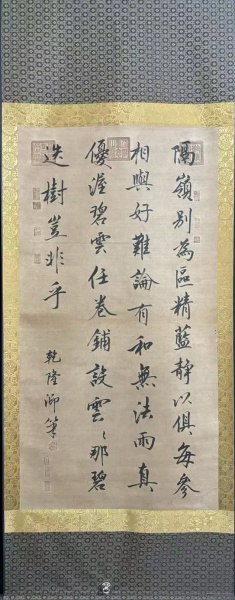 隔嶺別為區精藍靜以俱每參
相與好難論有和無法雨真
優渥碧雲任卷鋪設雲〻那碧
迭樹豈非乎
乾隆御筆